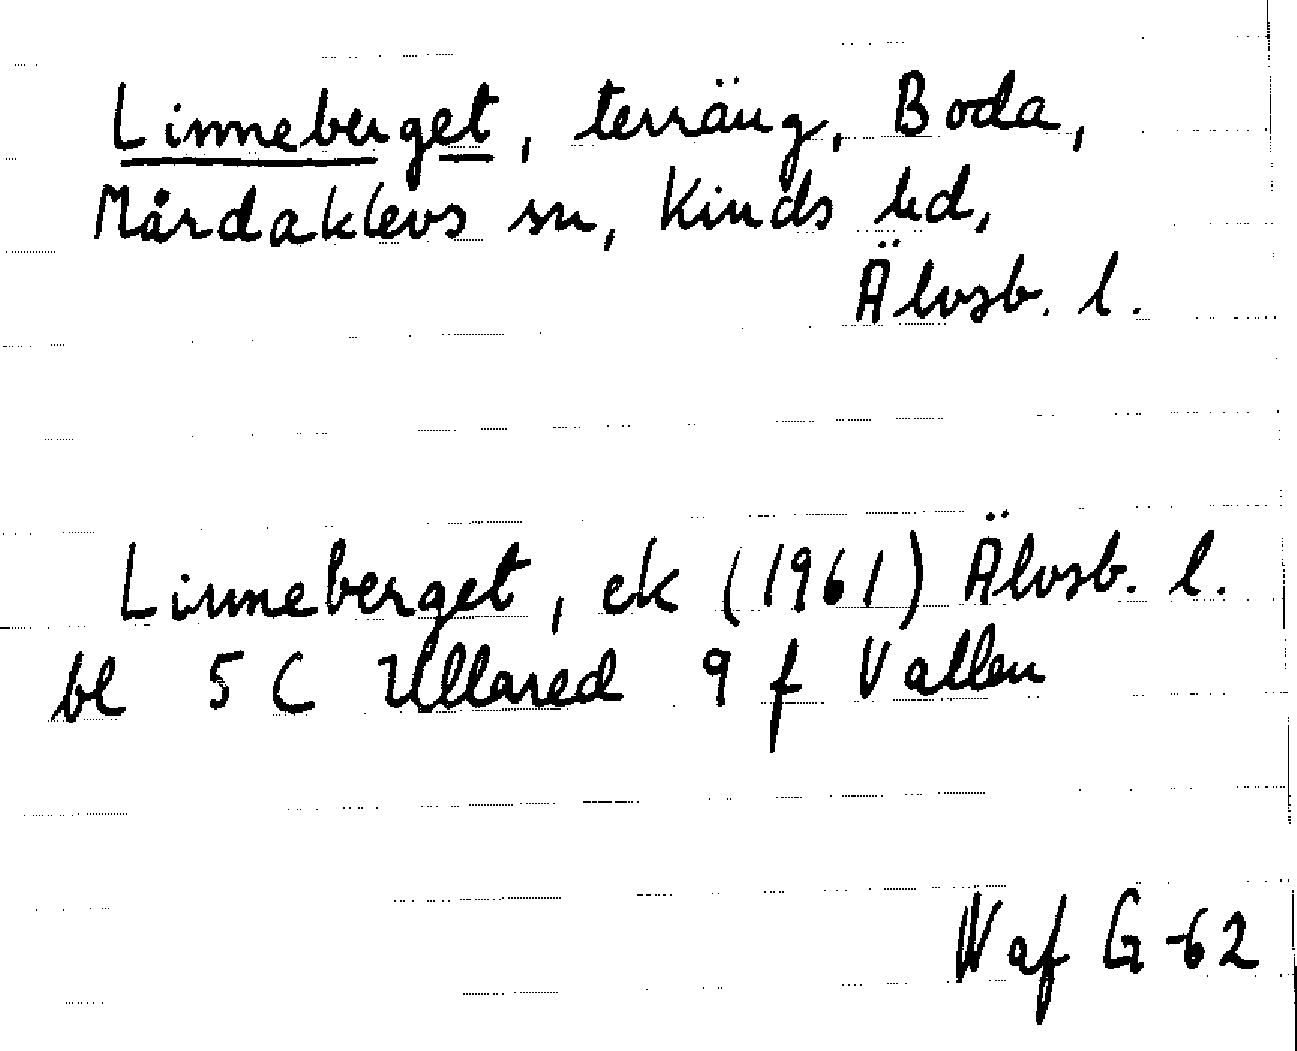 Linneberget, terräng, Boda,
Mårdaklevs sn, Kinds hd,
Älvsb. l.
Linneberget, ek (1961) Älvsb. l.
bl 5 C Ullared 9 f Vallen
W af G -62